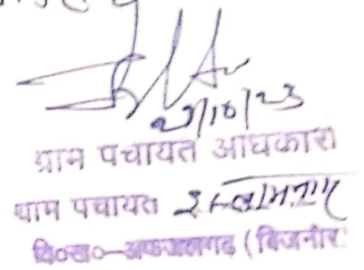 21/10/23
ग्राम पंचायत अधिकारी
ग्राम पंचायत
वि०ख०-अफजलगढ (बिजनौर